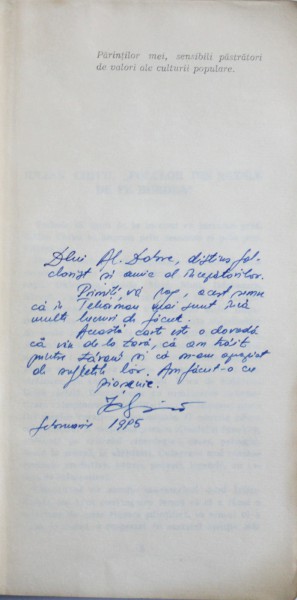 Părinților mei, sensibili păstrători
de valori ale culturii populare.
Dlui Al. Dobre, distins fol-
clorist și amic al începătorilor.
Primiți, vă rog, acest semn
că în Teleorman mai sunt încă
multe lucruri de făcut.
Această carte este o dovadă
că viu de la țară, că am trăit
printre țărani și că m-am apropiat
de sufletele lor. Am făcut-o cu
pioșenie.
februarie 1995